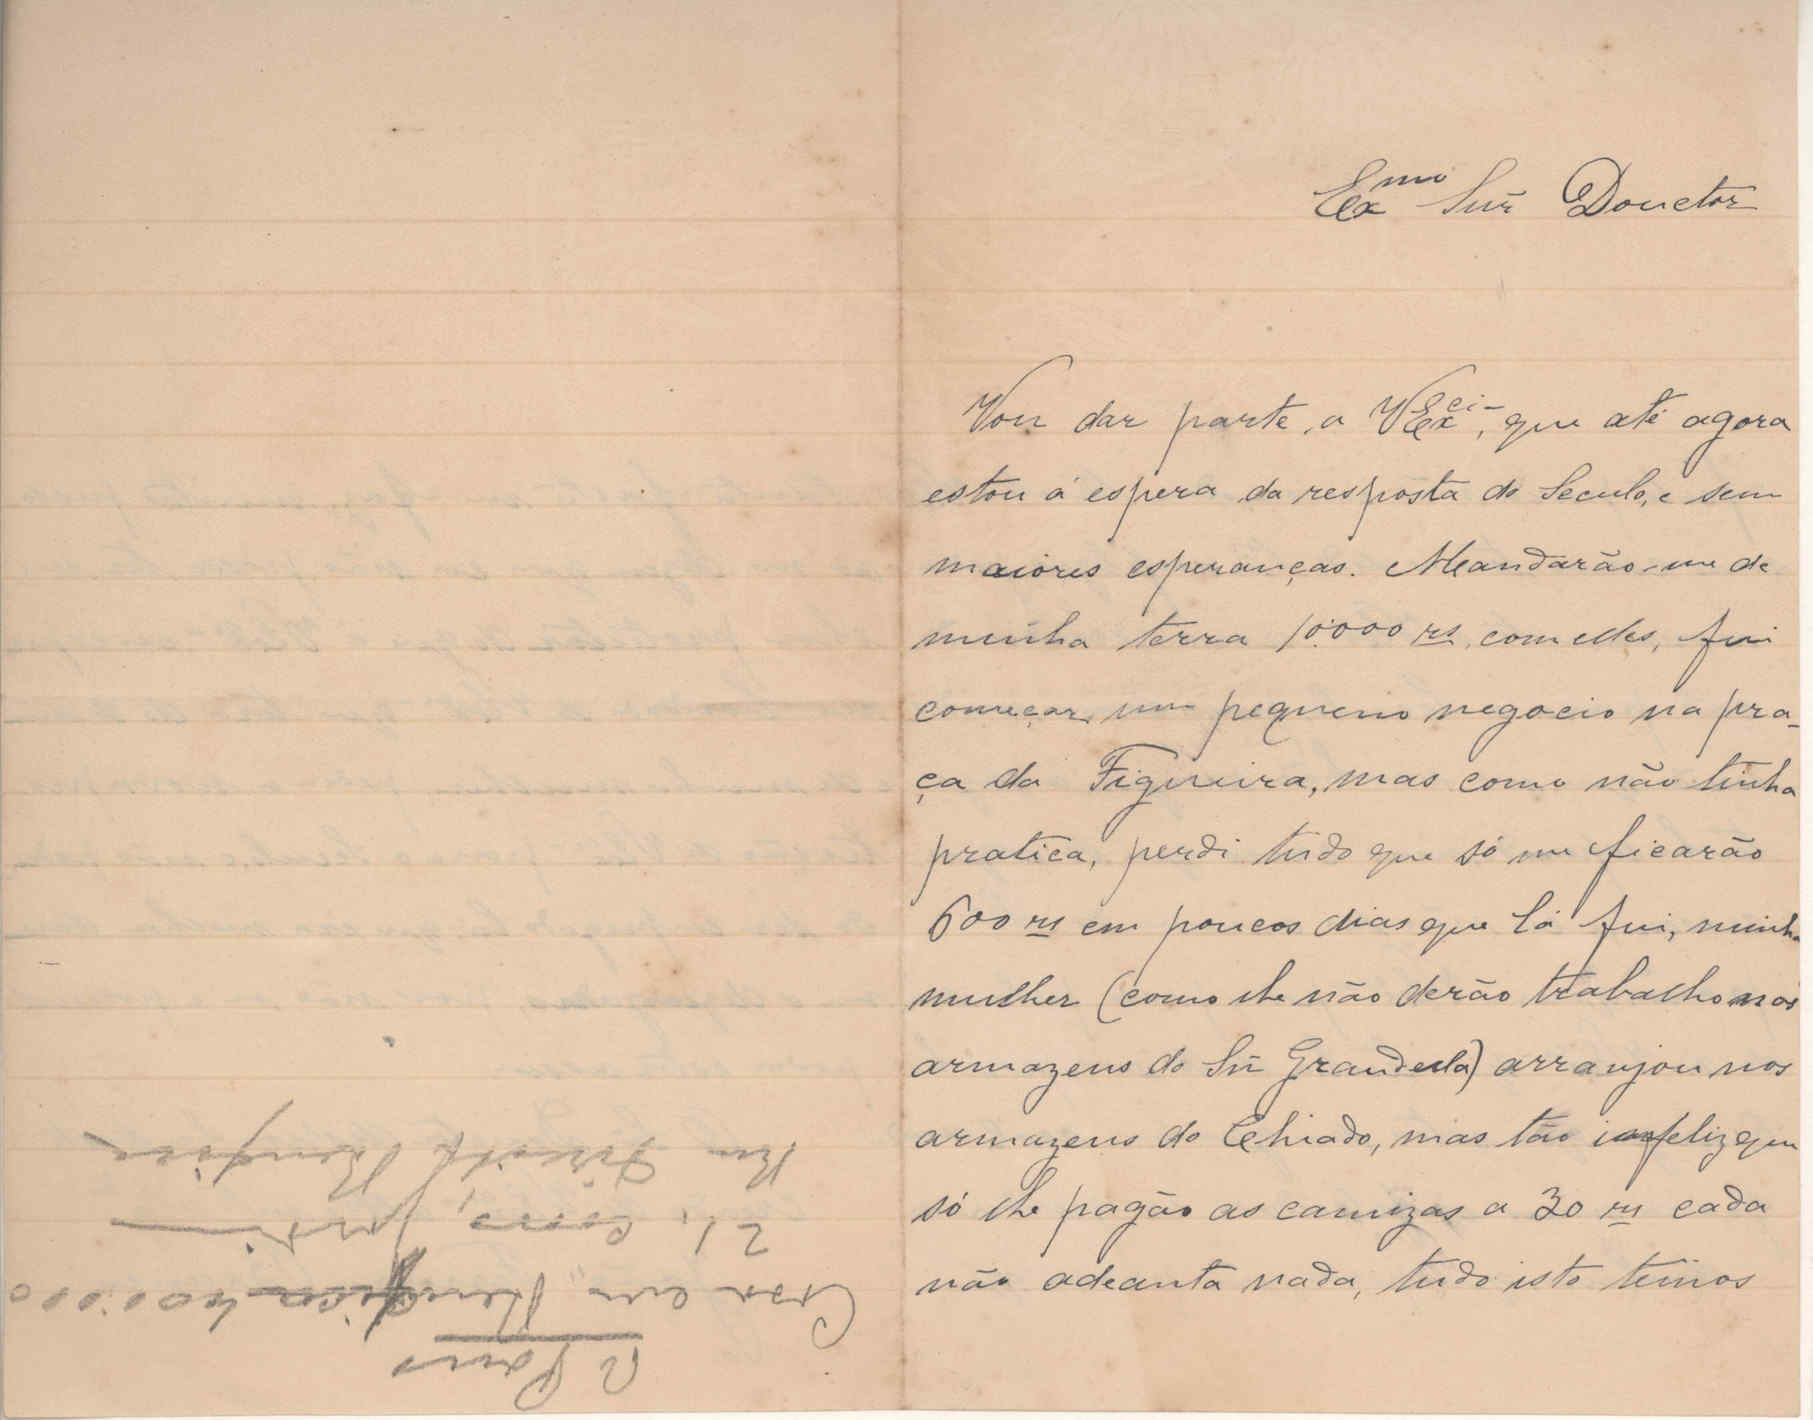 Exmo Snr Douctor
Vou dar parte, a VExcia, que até agora
estou á espera da resposta do Seculo, e sem
maiores esperanças. Mandarão-me de
minha terra 10:000 rs, com elles, fui
começar um pequeno negocio na pra-
ça da Figueira, mas como não tinha
pratica, perdi tudo que só me ficarão
600 rs em poucos dias que lá fui, minha
mulher (como lhe não derão trabalho nos
armazens do Snr Grandella) arranjou nos
armazens do Chiado, mas tão infeliz que
só lhe pagão as camizas a 30 rs cada
não adeanta nada, tudo isto temos
Casa em Bemfica 400:000
21,
Bemfica